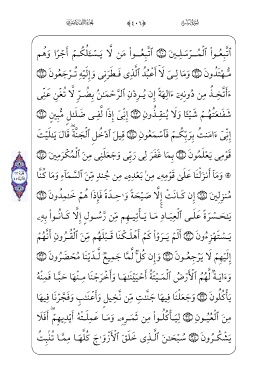 ٱتَّبِعُوا۟ ٱلْمُرْسَلِينَ ۝ ٱتَّبِعُوا۟ مَن لَّا يَسْـَٔلُكُمْ أَجْرًا وَهُم
مُّهْتَدُونَ ۝ وَمَا لِىَ لَآ أَعْبُدُ ٱلَّذِى فَطَرَنِى وَإِلَيْهِ تُرْجَعُونَ ۝
ءَأَتَّخِذُ مِن دُونِهِۦٓ ءَالِهَةً إِن يُرِدْنِ ٱلرَّحْمَـٰنُ بِضُرٍّ لَّا تُغْنِ عَنِّى
شَفَـٰعَتُهُمْ شَيْـًٔا وَلَا يُنقِذُونِ ۝ إِنِّىٓ إِذًا لَّفِى ضَلَـٰلٍ مُّبِينٍ ۝
إِنِّىٓ ءَامَنتُ بِرَبِّكُمْ فَٱسْمَعُونِ ۝ قِيلَ ٱدْخُلِ ٱلْجَنَّةَ ۖ قَالَ يَـٰلَيْتَ
قَوْمِى يَعْلَمُونَ ۝ بِمَا غَفَرَ لِى رَبِّى وَجَعَلَنِى مِنَ ٱلْمُكْرَمِينَ ۝
۞ وَمَآ أَنزَلْنَا عَلَىٰ قَوْمِهِۦ مِنۢ بَعْدِهِۦ مِن جُندٍ مِّنَ ٱلسَّمَآءِ وَمَا كُنَّا
مُنزِلِينَ ۝ إِن كَانَتْ إِلَّا صَيْحَةً وَٰحِدَةً فَإِذَا هُمْ خَـٰمِدُونَ ۝
يَـٰحَسْرَةً عَلَى ٱلْعِبَادِ ۚ مَا يَأْتِيهِم مِّن رَّسُولٍ إِلَّا كَانُوا۟ بِهِۦ
يَسْتَهْزِءُونَ ۝ أَلَمْ يَرَوْا۟ كَمْ أَهْلَكْنَا قَبْلَهُم مِّنَ ٱلْقُرُونِ أَنَّهُمْ
إِلَيْهِمْ لَا يَرْجِعُونَ ۝ وَإِن كُلٌّ لَّمَّا جَمِيعٌ لَّدَيْنَا مُحْضَرُونَ ۝
وَءَايَةٌ لَّهُمُ ٱلْأَرْضُ ٱلْمَيْتَةُ أَحْيَيْنَـٰهَا وَأَخْرَجْنَا مِنْهَا حَبًّا فَمِنْهُ
يَأْكُلُونَ ۝ وَجَعَلْنَا فِيهَا جَنَّـٰتٍ مِّن نَّخِيلٍ وَأَعْنَـٰبٍ وَفَجَّرْنَا فِيهَا
مِنَ ٱلْعُيُونِ ۝ لِيَأْكُلُوا۟ مِن ثَمَرِهِۦ وَمَا عَمِلَتْهُ أَيْدِيهِمْ ۖ أَفَلَا
يَشْكُرُونَ ۝ سُبْحَـٰنَ ٱلَّذِى خَلَقَ ٱلْأَزْوَٰجَ كُلَّهَا مِمَّا تُنۢبِتُ